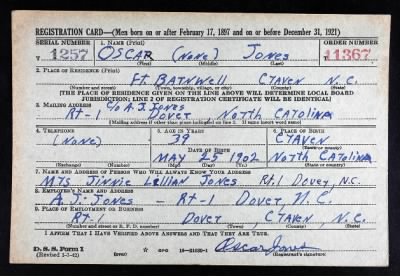 REGISTRATION CARD—(Men born on or after February 17, 1897 and on or before December 31, 1921)
SERIAL NUMBER 1. NAME (Print) ORDER NUMBER
T 1257 OSCAR (NONE) JONES 11367
(First) (Middle) (Last)
2. PLACE OF RESIDENCE (Print)
FT. BARNWELL CRAVEN N.C.
(Number and street) (Town, township, village, or city) (County) (State)
[THE PLACE OF RESIDENCE GIVEN ON THE LINE ABOVE WILL DETERMINE LOCAL BOARD
JURISDICTION; LINE 2 OF REGISTRATION CERTIFICATE WILL BE IDENTICAL]
3. MAILING ADDRESS
C/O A.J. JONES
Rt-1 DOVER NORTH CAROLINA
[Mailing address if other than place indicated on line 2. If same insert word same]
4. TELEPHONE 5. AGE IN YEARS 6. PLACE OF BIRTH
(NONE) 39 CRAVEN
DATE OF BIRTH (Town or county)
MAY 25 1902 NORTH CAROLINA
(Exchange) (Number) (Mo.) (Day) (Yr.) (State or country)
7. NAME AND ADDRESS OF PERSON WHO WILL ALWAYS KNOW YOUR ADDRESS
MRS JINNIE LEILIAN JONES Rt.1 DOVER, N.C.
8. EMPLOYER'S NAME AND ADDRESS
A.J. JONES - Rt-1 DOVER, N.C.
9. PLACE OF EMPLOYMENT OR BUSINESS
Rt-1 DOVER, CRAVEN, N.C.
(Number and street or R. F. D. number) (Town) (County) (State)
I AFFIRM THAT I HAVE VERIFIED ABOVE ANSWERS AND THAT THEY ARE TRUE.
D. S. S. Form 1
(Revised 1-1-42) (over) GPO Oscar Jones
(Registrant's signature)